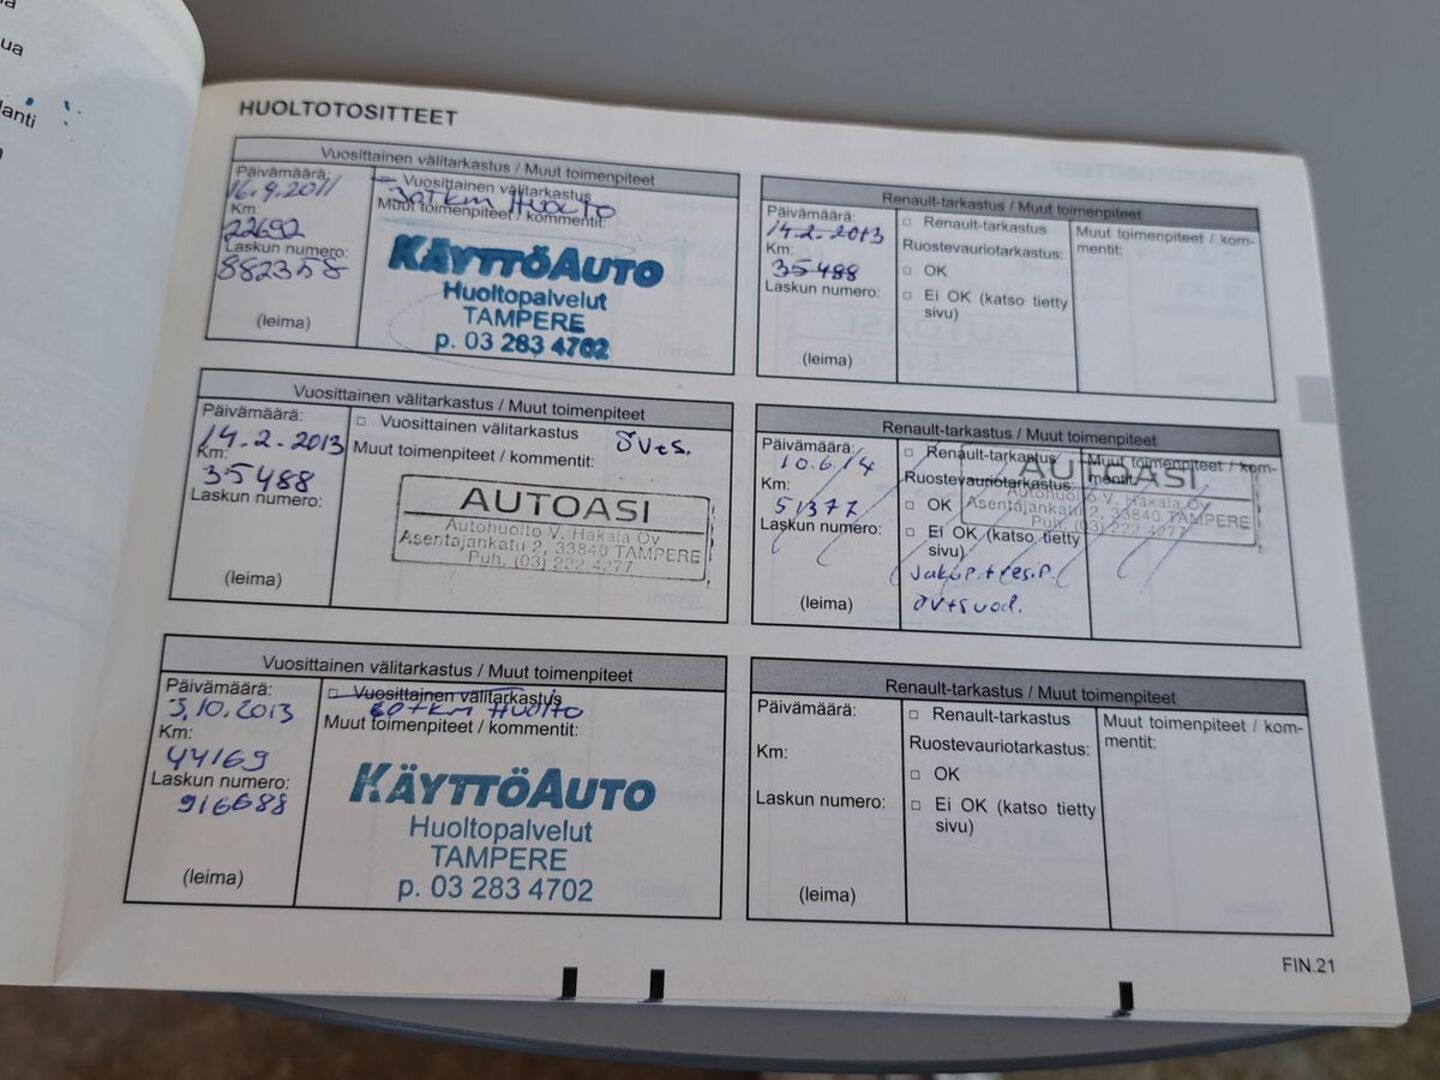 ua
lanti
HUOLTOTOSITTEET
Vuosittainen välitarkastus / Muut toimenpiteet
Päivämäärä:
16.9.2011
Km:
22692
Laskun numero:
882358
(leima)
Vuosittainen välitarkastus
30TKM HUOLTO
Muut toimenpiteet / kommentit:
KÄYTTÖAUTO
Huoltopalvelut
TAMPERE
p. 03 283 4702
Renault-tarkastus / Muut toimenpiteet
Päivämäärä:
14.2.2013
Km:
35488
Laskun numero:
(leima)
Renault-tarkastus
Ruostevauriotarkastus:
OK
Ei OK (katso tietty
sivu)
Muut toimenpiteet / kom-
mentit:
Vuosittainen välitarkastus / Muut toimenpiteet
Päivämäärä:
14.2.2013
Km:
35488
Laskun numero:
(leima)
Vuosittainen välitarkastus
öv+s.
Muut toimenpiteet / kommentit:
AUTOASI
Autohuolto V. Hakala Oy
Asentajankatu 2, 33840 TAMPERE
Puh. (03) 222 4277
Renault-tarkastus / Muut toimenpiteet
Päivämäärä:
10.6.14
Km:
51377
Laskun numero:
(leima)
Renault-tarkastus
Ruostevauriotarkastus:
OK
Ei OK (katso tietty
sivu)
öv+suod.
Muut toimenpiteet / kom-
mentit:
AUTOASI
Autohuolto V. Hakala Oy
Asentajankatu 2, 33840 TAMPERE
Puh. (03) 222 4277
Vuosittainen välitarkastus / Muut toimenpiteet
Päivämäärä:
3.10.2013
Km:
44169
Laskun numero:
916688
(leima)
Vuosittainen välitarkastus
60TKM HUOLTO
Muut toimenpiteet / kommentit:
KÄYTTÖAUTO
Huoltopalvelut
TAMPERE
p. 03 283 4702
Renault-tarkastus / Muut toimenpiteet
Päivämäärä:
Km:
Laskun numero:
(leima)
Renault-tarkastus
Ruostevauriotarkastus:
OK
Ei OK (katso tietty
sivu)
Muut toimenpiteet / kom-
mentit:
FIN.21